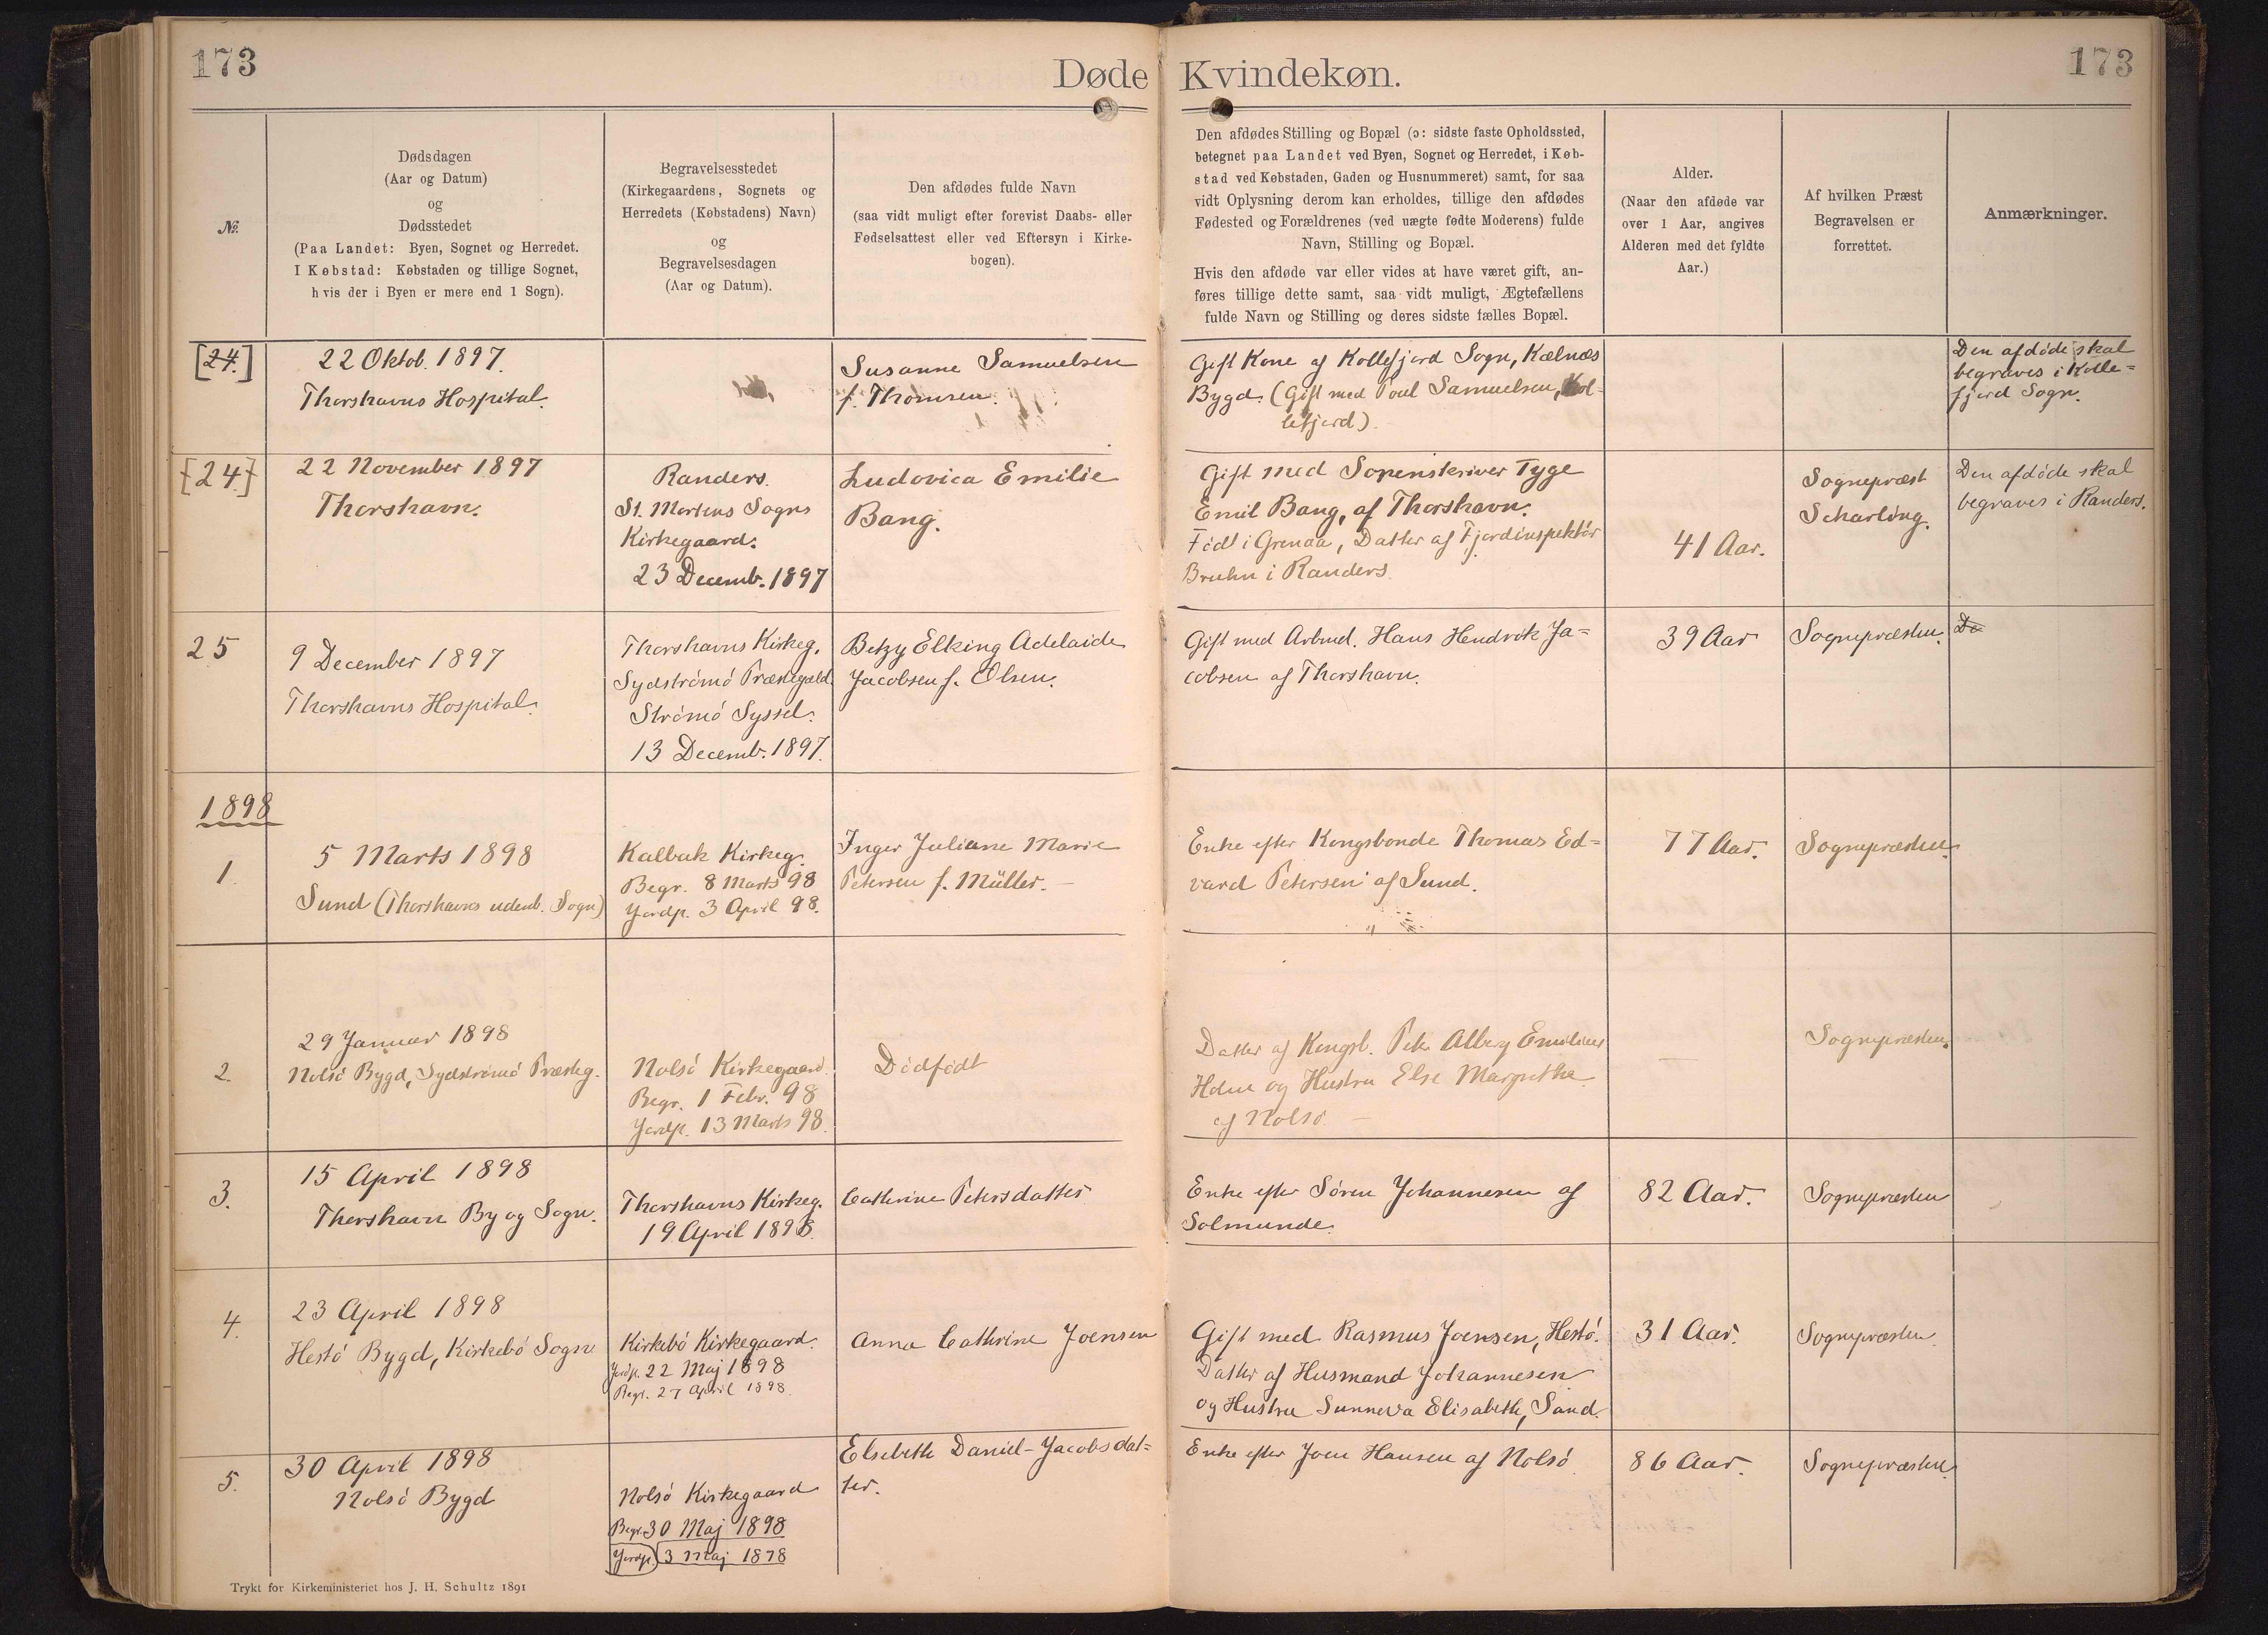 173
Døde Kvindekøn.
173
№
Dødsdagen
(Aar og Datum)
og
Dødsstedet
(Paa Landet: Byen, Sognet og Herredet.
I Købstad: Købstaden og tillige Sognet,
hvis der i Byen er mere end 1 Sogn).
Begravelsesstedet
(Kirkegaardens, Sognets og
Herredets (Købstadens) Navn)
og
Begravelsesdagen
(Aar og Datum).
Den afdødes fulde Navn
(saa vidt muligt efter forevist Daabs- eller
Fødselsattest eller ved Eftersyn i Kirke-
bogen).
Den afdødes Stilling og Bopæl (ɔ: sidste faste Opholdssted,
betegnet paa Landet ved Byen, Sognet og Herredet, i Køb-
stad ved Købstaden, Gaden og Husnummeret) samt, for saa
vidt Oplysning derom kan erholdes, tillige den afdødes
Fødested og Forældrenes (ved uægte fødte Moderens) fulde
Navn, Stilling og Bopæl.
Hvis den afdøde var eller vides at have været gift, an-
føres tillige dette samt, saa vidt muligt, Ægtefællens
fulde Navn og Stilling og deres sidste fælles Bopæl.
Alder.
(Naar den afdøde var
over 1 Aar, angives
Alderen med det fyldte
Aar.)
Af hvilken Præst
Begravelsen er
forrettet.
Anmærkninger.
[24.]
22 Oktob. 1897.
Thorshavns Hospital.
Susanne Samuelsen
f. Thomsen.
Gift Kone af Kollefjord Sogn, Kælnæs
Bygd. (Gift med Poul Samuelsen, Kol-
lefjord).
Den afdöde skal
begraves i Kolle=
fjord Sogn.
[24]
22 November 1897
Thorshavn.
Randers.
St. Mortens Sogns
Kirkegaard.
23 Decemb. 1897
Ludovica Emilie
Bang.
Gift med Sorenskriver Tyge
Emil Bang, af Thorshavn.
Födt i Grenaa, Datter af Fjordinspektör
Bruhn i Randers.
41 Aar.
Sognepræst
Scharling.
Den afdöde skal
begraves i Randers.
25
9 December 1897
Thorshavns Hospital.
Thorshavns Kirkeg.
Sydströmö Præstegæld.
Strömö Syssel.
13 Decemb. 1897.
Betzy Elking Adelaide
Jacobsen f. Olsen.
Gift med Arbmd. Hans Hendrik Ja=
cobsen af Thorshavn.
39 Aar
Sognepræsten.
Do
1898
1.
5 Marts 1898
Sund (Thorshavns udenb. Sogn)
Kalbak Kirkeg.
Begr. 8 Marts 98
Jordp. 3 April 98.
Inger Juliane Marie
Petersen f. Müller.
Enke efter Kongsbonde Thomas Ed=
vard Petersen af Sund.
77 Aar.
Sognepræsten.
2.
29 Januar 1898
Nolsö Bygd, Sydströmö Præsteg.
Nolsö Kirkegaard.
Begr. 1 Febr. 98
Jordp. 13 Marts 98.
Dödfödt
Datter af Kongsb. Peter Alberg Emilius
og Hustru Else Margrethe
af Nolsö.
—
Sognepræsten.
3.
15 April 1898
Thorshavn By og Sogn.
Thorshavns Kirkeg.
19 April 1898.
Cathrine Petersdatter
Enke efter Sören Johannesen af
Solmunde.
82 Aar.
Sognepræsten
4.
23 April 1898
Hestö Bygd, Kirkebö Sogn
Kirkebö Kirkegaard.
Jordp. 22 Maj 1898
Begr. 27 April 1898.
Anna Cathrine Joensen
Gift med Rasmus Joensen, Hestö.
Datter af Husmand Johannesen
og Hustru Sunneva Elisabeth, Sand.
31 Aar.
Sognepræsten
5.
30 April 1898
Nolsö Bygd
Nolsö Kirkegaard
Begr. 30 Maj 1898
Jordp. 3 Maj 1898
Elsebeth Daniel-Jacobsdat=
ter.
Enke efter Joen Hansen af Nolsö
86 Aar.
Sognepræsten.
Trykt for Kirkeministeriet hos J. H. Schultz 1891